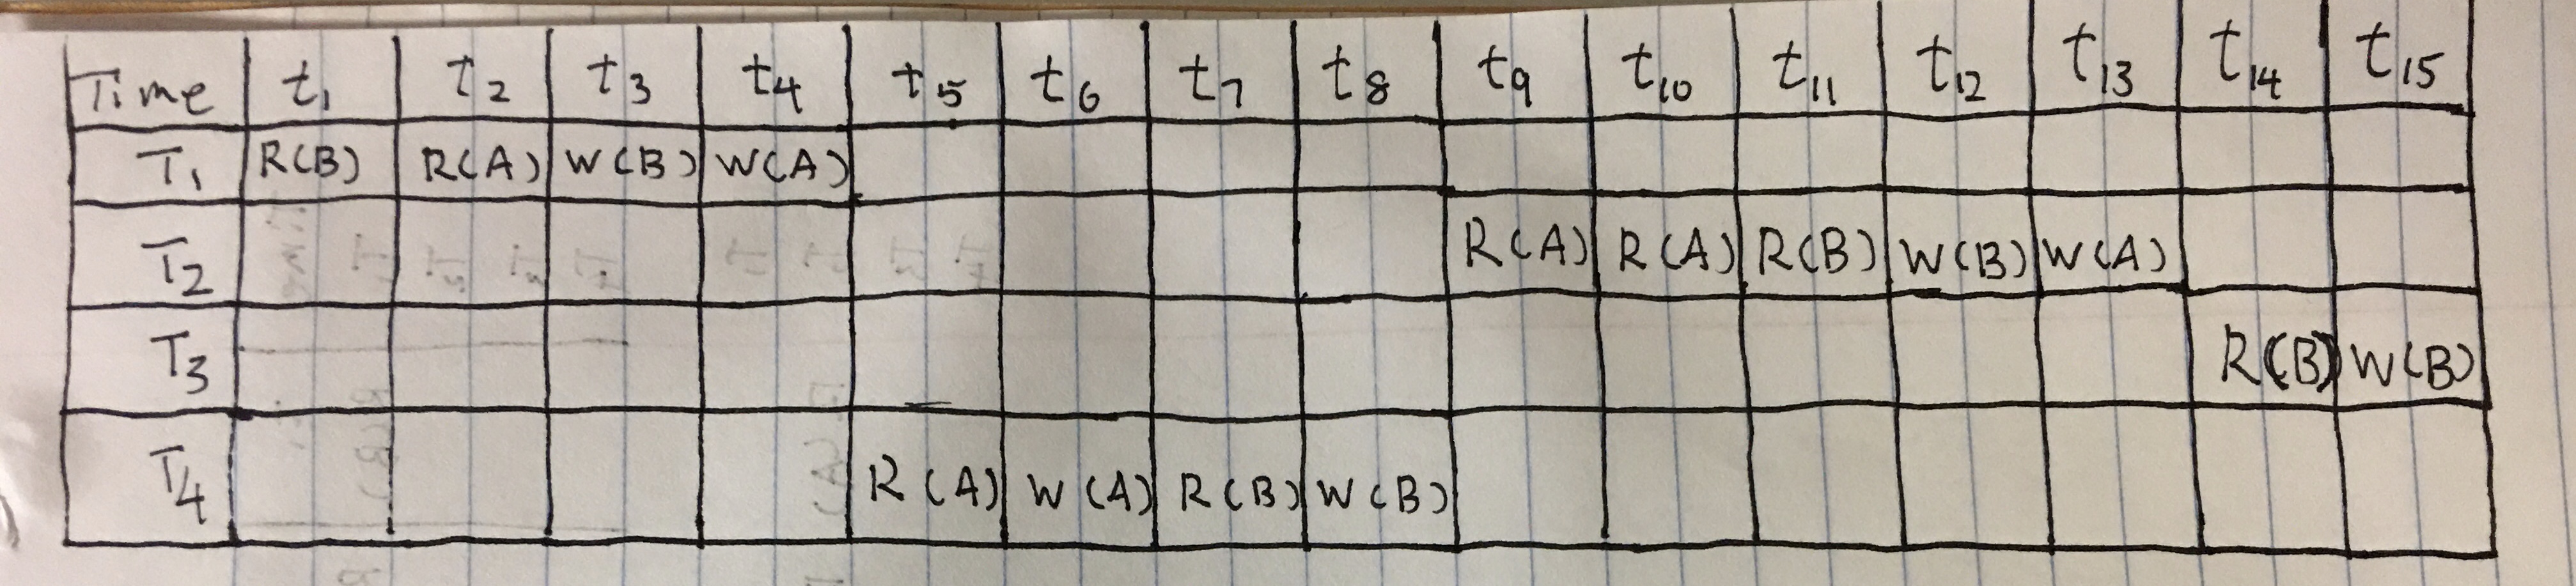 Time t1 t2 t3 t4 t5 t6 t7 t8 t9 t10 t11 t12 t13 t14 t15
T1 R(B) R(A) W(B) W(A)
T2 R(A) R(A) R(B) W(B) W(A)
T3 R(B) W(B)
T4 R(A) W(A) R(B) W(B)